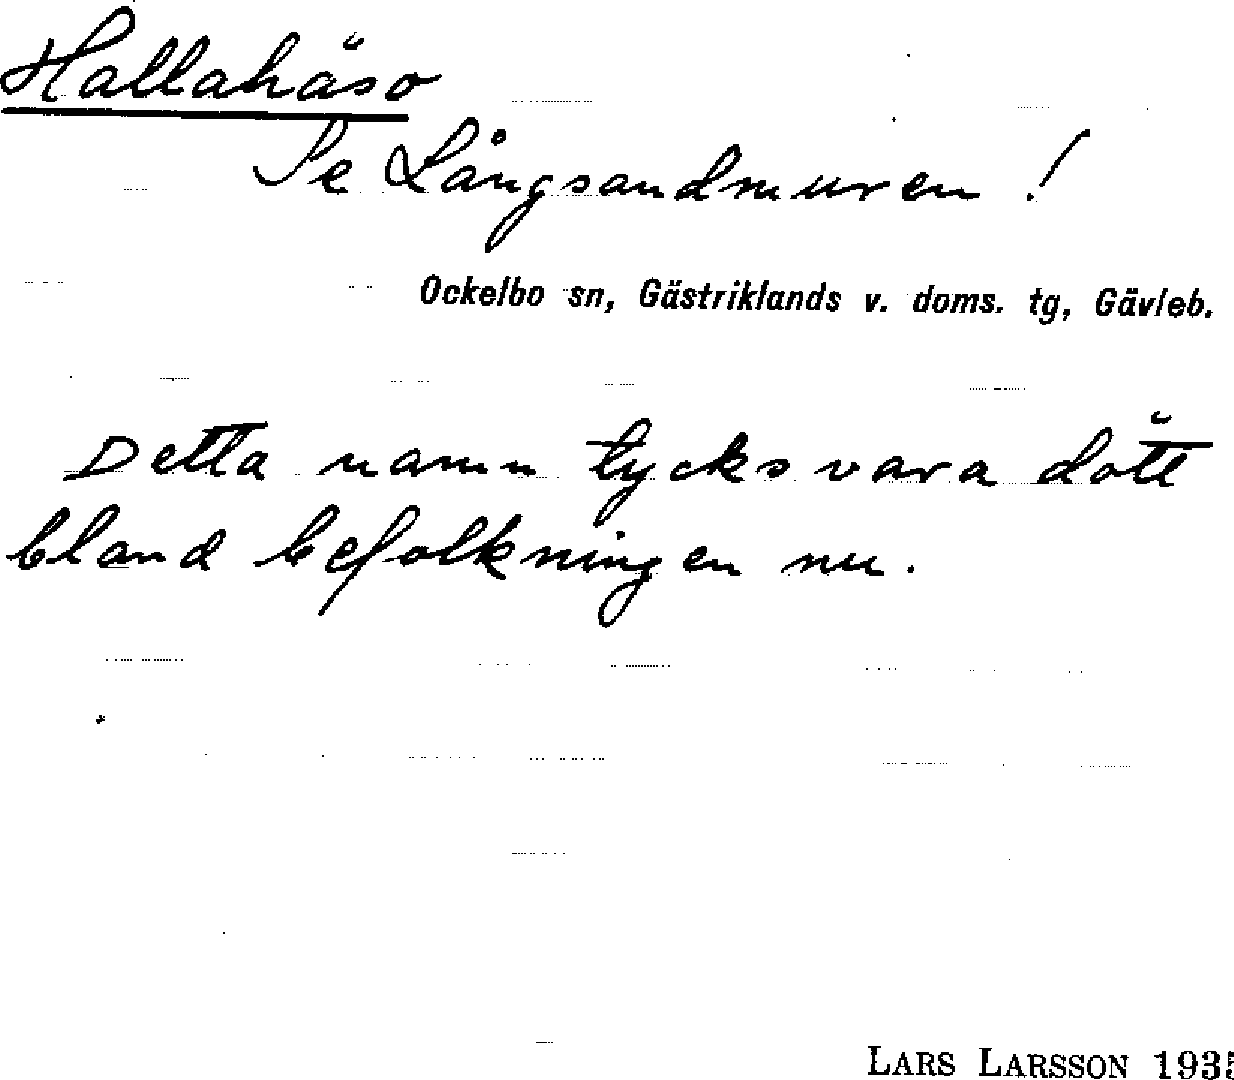 Hallahäso
Se Långsandmuren!
Ockelbo sn, Gästriklands v. doms. tg, Gävleb.
Detta namn tycks vara dött
bland befolkningen nu.
LARS LARSSON 1935